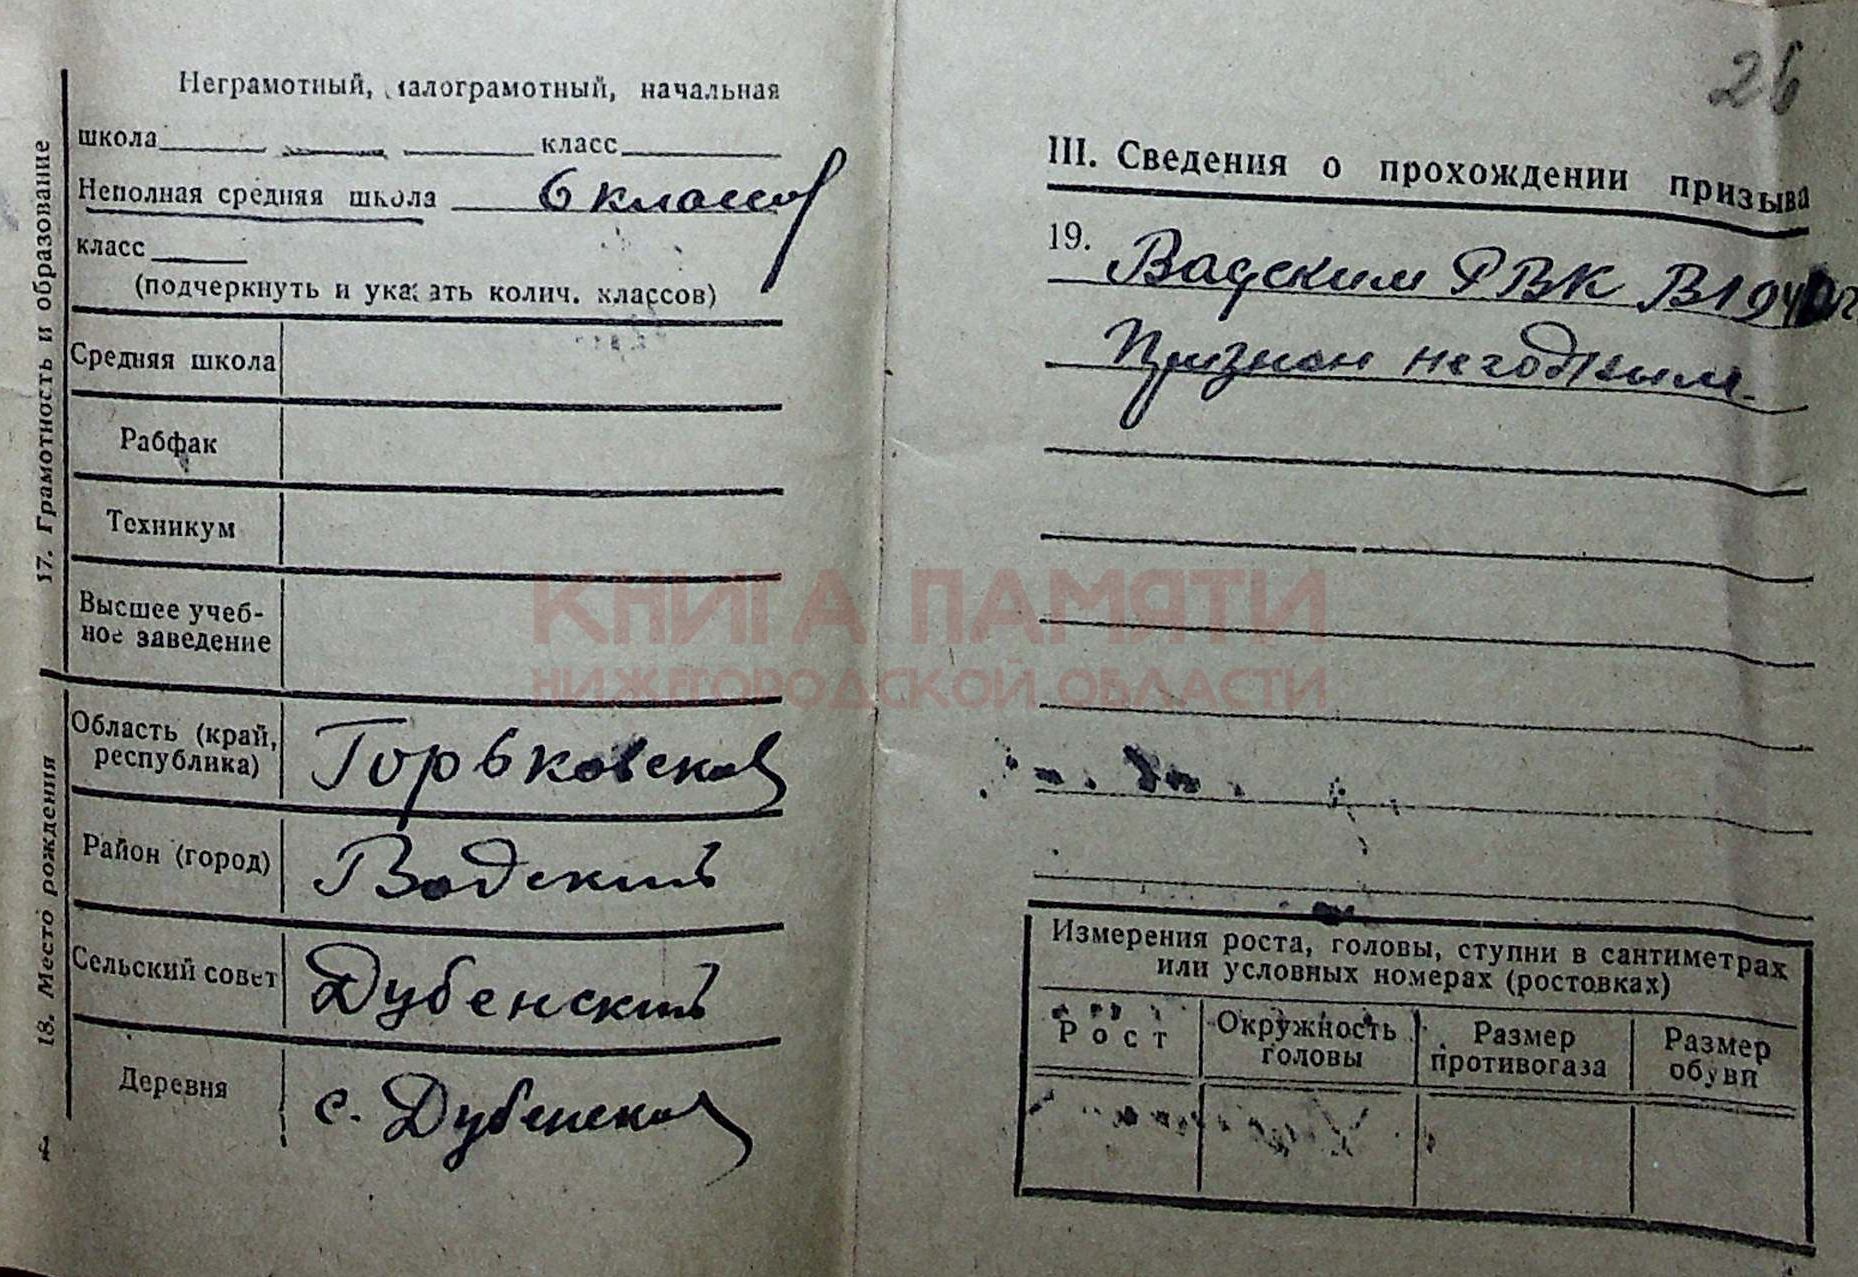 17. Грамотность и образование
Неграмотный, малограмотный, начальная
школа класс
Неполная средняя школа 6 классов
класс
(подчеркнуть и указать колич. классов)
Средняя школа
Рабфак
Техникум
Высшее учеб-
ное заведение
18. Место рождения
Область (край,
республика) Горьковская
Район (город) Вадский
Сельский совет Дубенский
Деревня с. Дубенская
26
III. Сведения о прохождении призыва
19. Вадским РВК в 1940 г
Признан негодным
Измерения роста, головы, ступни в сантиметрах
или условных номерах (ростовках)
Рост
Окружность
головы
Размер
противогаза
Размер
обуви
КНИГА ПАМЯТИ
НИЖЕГОРОДСКОЙ ОБЛАСТИ